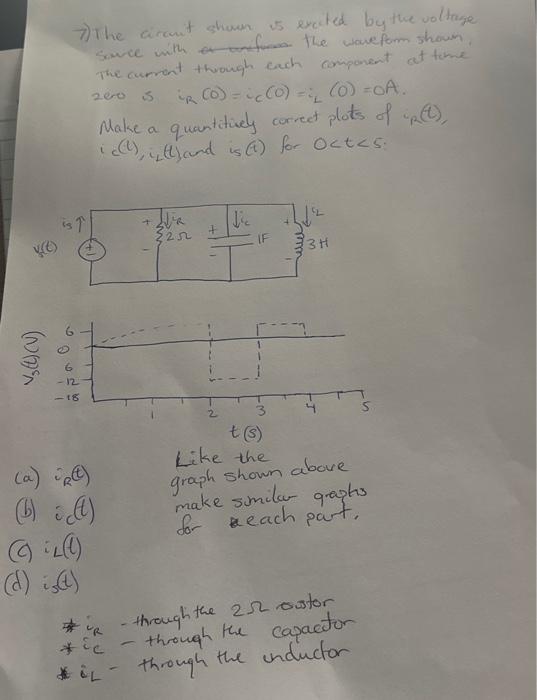 7) The circuit shown is excited by the voltage
source with the waveform shown.
The current through each component at time
zero is iR (0) = ic(0) = iL (0) = 0A.
Make a quantitively correct plots of iR(t),
ic(t), iL(t) and is(t) for 0<t<5:
is↑
+ ↓iR
+ ↓ic
+ ↓iL
Vs(t)
2Ω
1F
3H
-
-
-
6
0
6
-12
-18
Vs(t)(V)
1 2 3 4 5
t(s)
Like the
graph shown above
make similar graphs
for each part.
(a) iR(t)
(b) ic(t)
(c) iL(t)
(d) is(t)
* iR - through the 2Ω resistor
* ic - through the capacitor
* iL - through the inductor